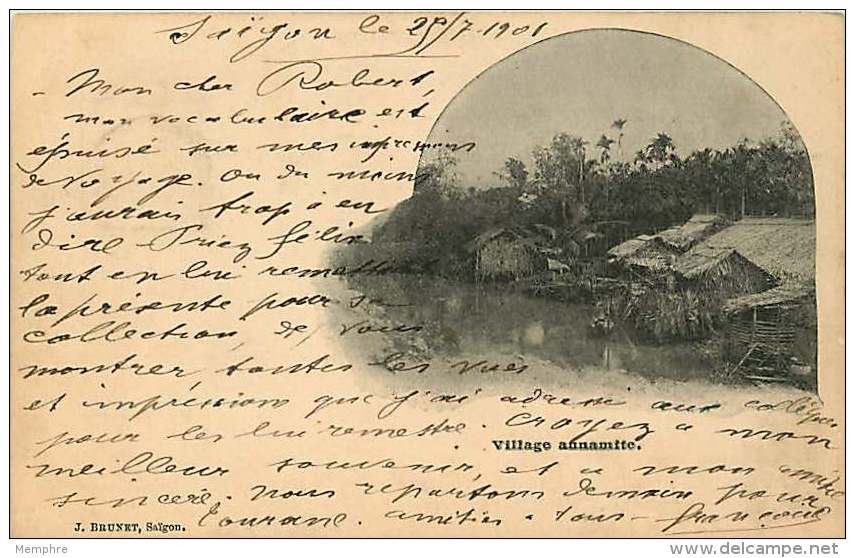 Saïgon le 25/7-1901
- Mon cher Robert,
mon vocabulaire est
épuisé sur mes impressions
de voyage. Ou du moins
j'aurais trop à en
dire. Priez félix
tout en lui remettant
la présente pour sa
collection, de vous
montrer toutes les vues
et impressions que j'ai adressé aux collègues
pour les lui remettre. Croyez a mon
meilleur souvenir, et a mon amitié
sincère. Nous repartons demain pour
Tourane. amitiés a tous - françois
Village annamite.
J. BRUNET, Saïgon.
Memphre
delcampe.net